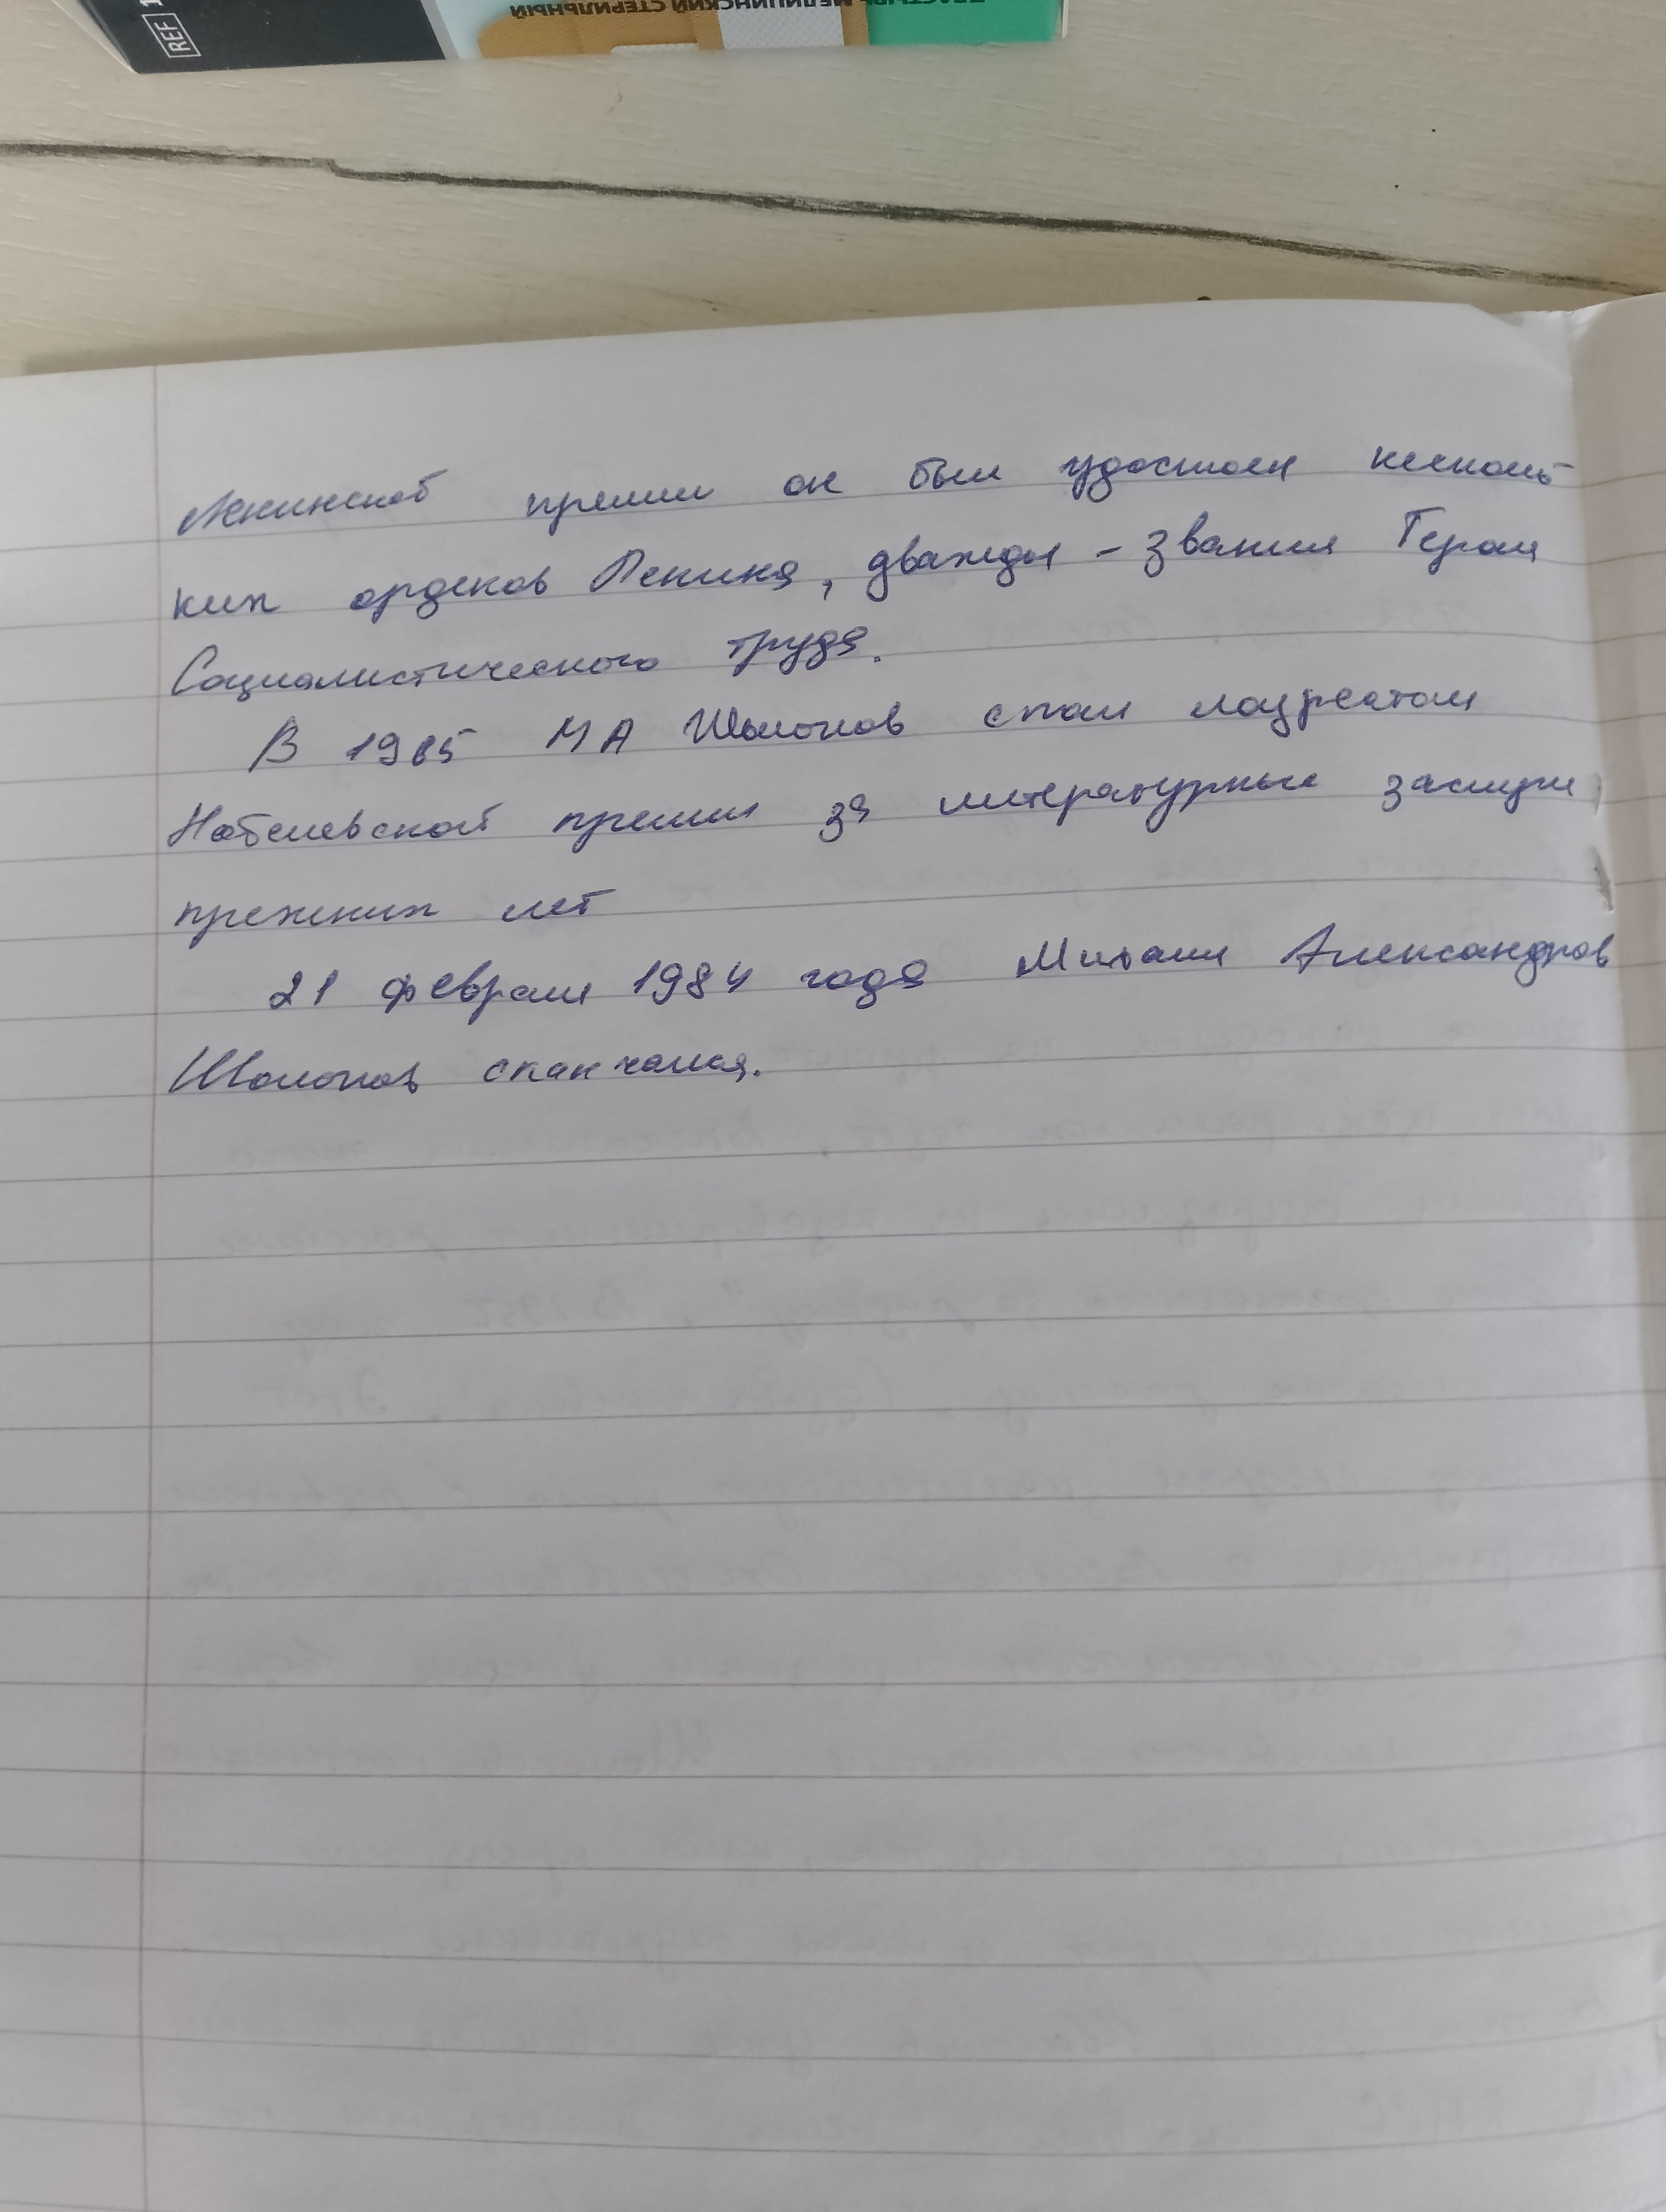 REF 1
ПЛАСТЫРЬ МЕДИЦИНСКИЙ СТЕРИЛЬНЫЙ
Ленинской премии он был удостоен несколь
ких орденов Ленина, дважды - звания Героя
Социалистического труда.
В 1965 МА Шолохов стал лауреатом
Нобелевской премии за литературные заслуги
прежних лет
21 февраля 1984 года Михаил Александров
Шолохов скончался.